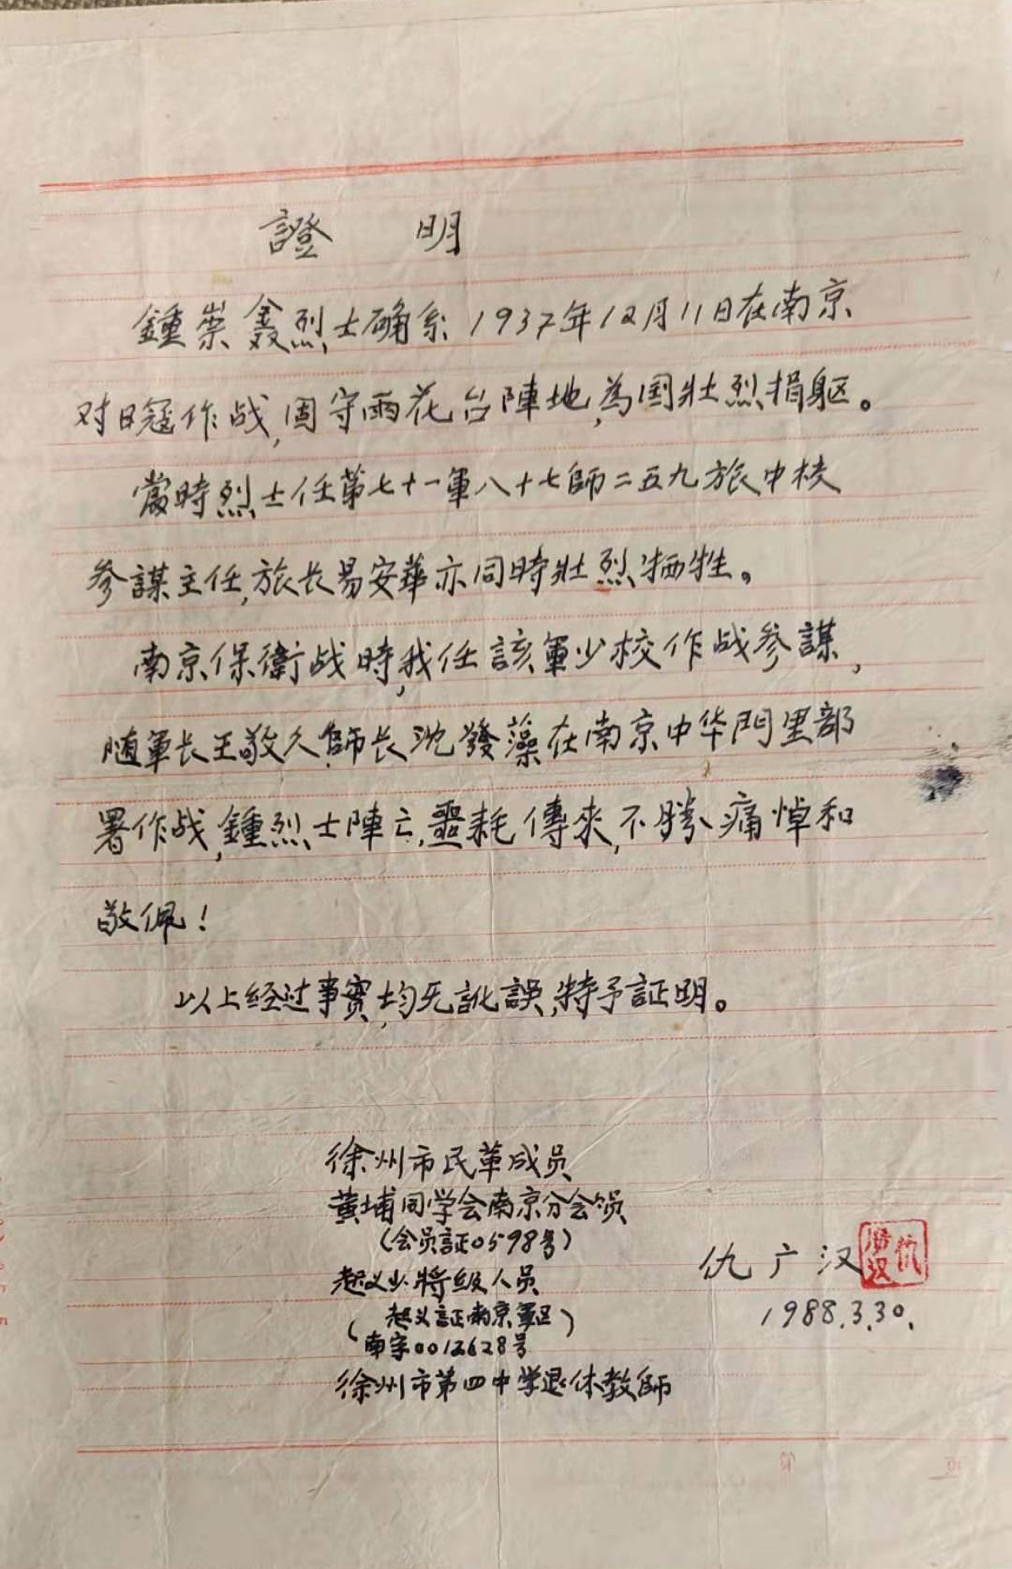 證 明
鍾崇鑫烈士确系1937年12月11日在南京
对日寇作战,固守雨花台陣地,為国壯烈捐躯。
當時烈士任第七十一軍八十七師二五九旅中校
参謀主任,旅长易安華亦同時壯烈牺牲。
南京保衛战時,我任該軍少校作战参謀,
随軍长王敬久師长沈發藻在南京中华門里部
署作战,鍾烈士陣亡,噩耗傳來,不勝痛悼和
敬佩!
以上经过事實,均无訛誤,特予証明。
徐州市民革成员
黄埔同学会南京分会员
(会员証0598号)
起义少將级人员
(起义証南京軍区
南字0012628号)
徐州市第四中学退休教師
仇广汉
仇广汉
1988.3.30.